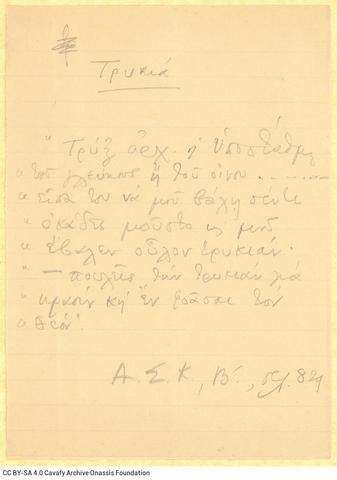 Τρυκιά
"Τρὺξ ἀρχ. ἡ ὑποστάθμη
"τοῦ γλεύκους ἢ τοῦ οἴνου.........
"εἶπα του νὰ μοῦ βάλῃ πέντε
"ὀκάδες μοῦστο κι μοῦ
"ἔβαλεν οὗλον τρυκιάν.
"— πουλεῖς τὴν τρυκιὰν γιὰ
"κἠ ἒν τὸν
"θεόν".
Α. Σ. Κ., Β΄., σελ. 829
CC BY-SA 4.0 Cavafy Archive Onassis Foundation